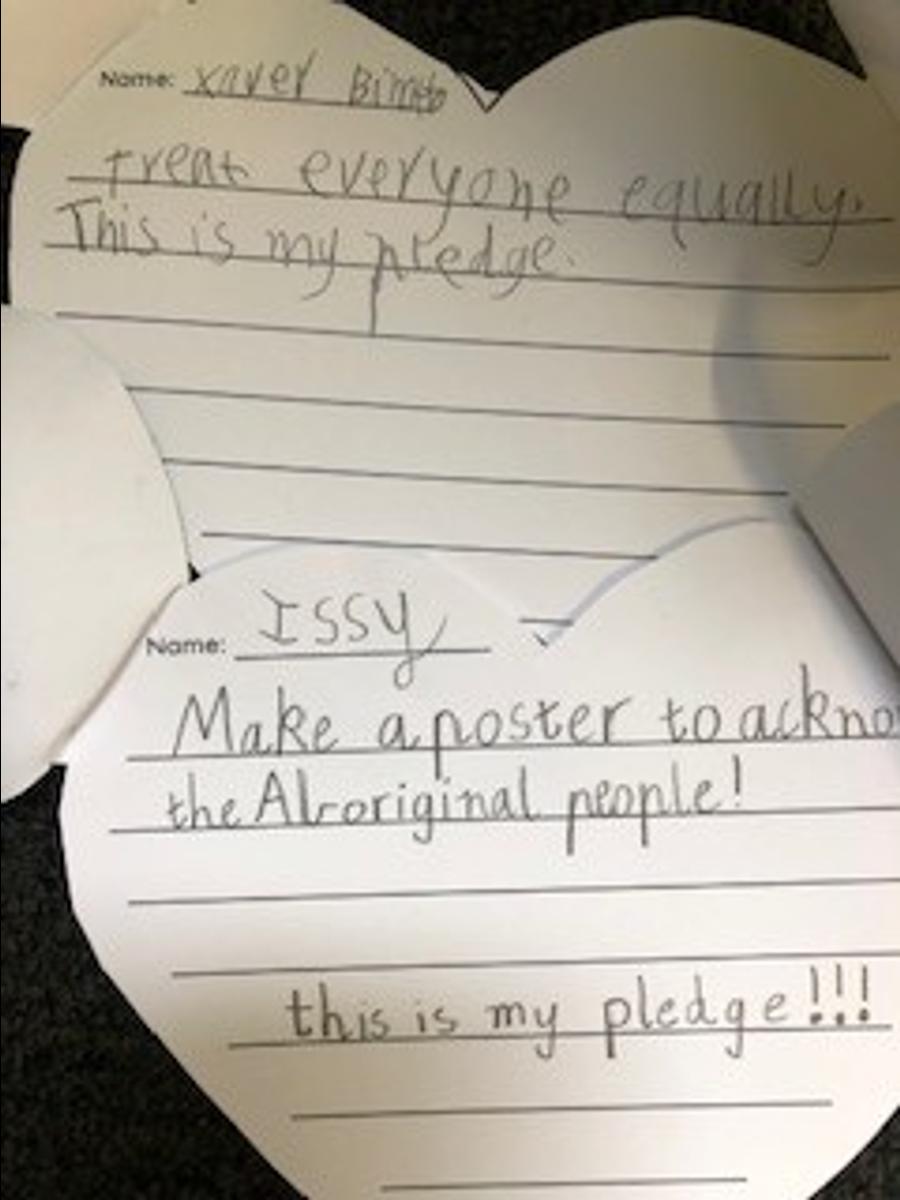 Name: xaver
treat everyone equally.
This is my pledge.
Name: Issy
Make a poster to ackno
the Alroriginal people!
this is my pledge!!!